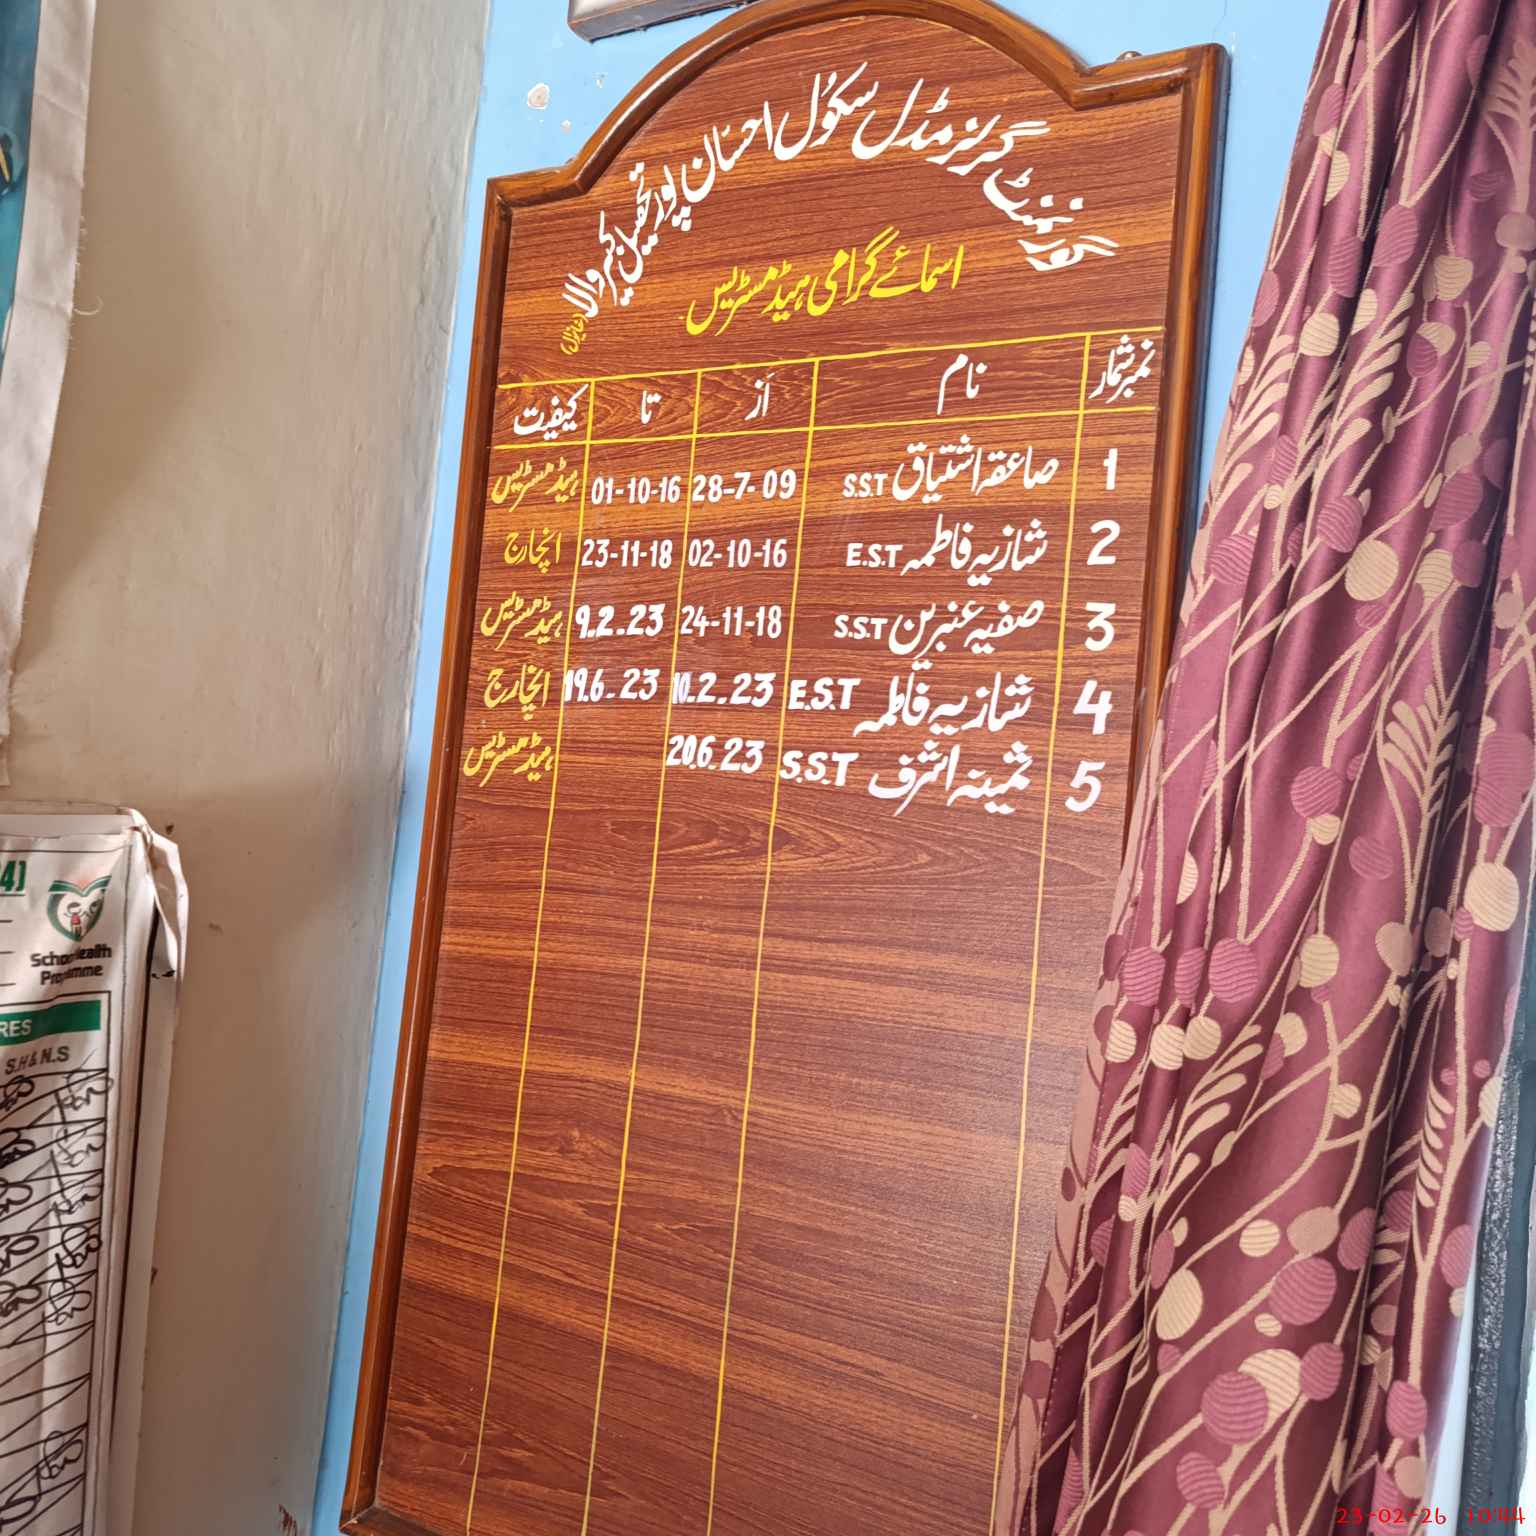 گورنمنٹ گرلز مڈل سکول احسان پور تحصیل کبیر والا (خانیوال)
اسمائے گرامی ہیڈ مسٹریس
نمبر شمار نام از تا کیفیت
1 صاعقہ اشتیاق S.S.T 28-7-09 01-10-16 ہیڈ مسٹریس
2 شازیہ فاطمہ E.S.T 02-10-16 23-11-18 انچارج
3 صفیہ عنبرین S.S.T 24-11-18 9.2.23 ہیڈ مسٹریس
4 شازیہ فاطمہ E.S.T 10.2.23 19.6.23 انچارج
5 ثمینہ اشرف S.S.T 20.6.23 ہیڈ مسٹریس
4)
School Health
Programme
RES
S.H & N.S
23-02-26 10:44